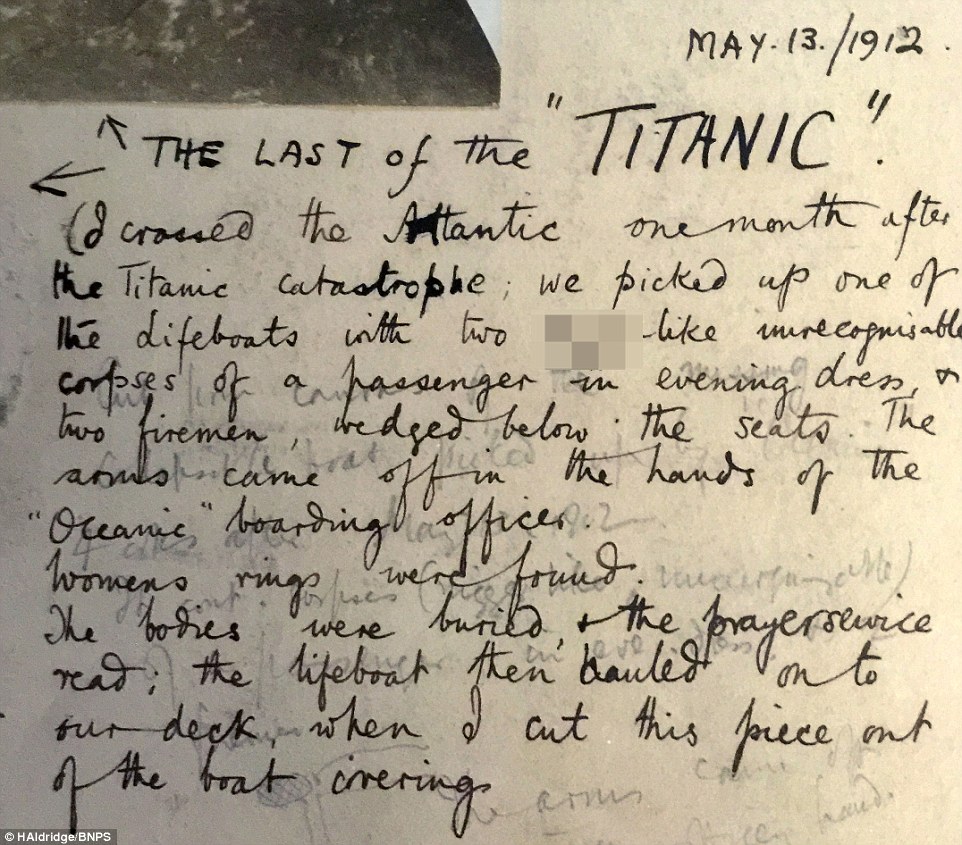 MAY. 13. / 1912.
THE LAST of the "TITANIC".
(I crossed the Atlantic one month after
the Titanic catastrophe; we picked up one of
the lifeboats with two -like unrecognisable
corpses of a passenger in evening dress, &
two firemen, wedged below the seats. The
arms came off in the hands of the
"Oceanic" boarding officer.
Womens rings were found.
The bodies were buried, & the prayerservice
read; the lifeboat then hauled on to
our deck, when I cut this piece out
of the boat coverings
© HAldridge/BNPS